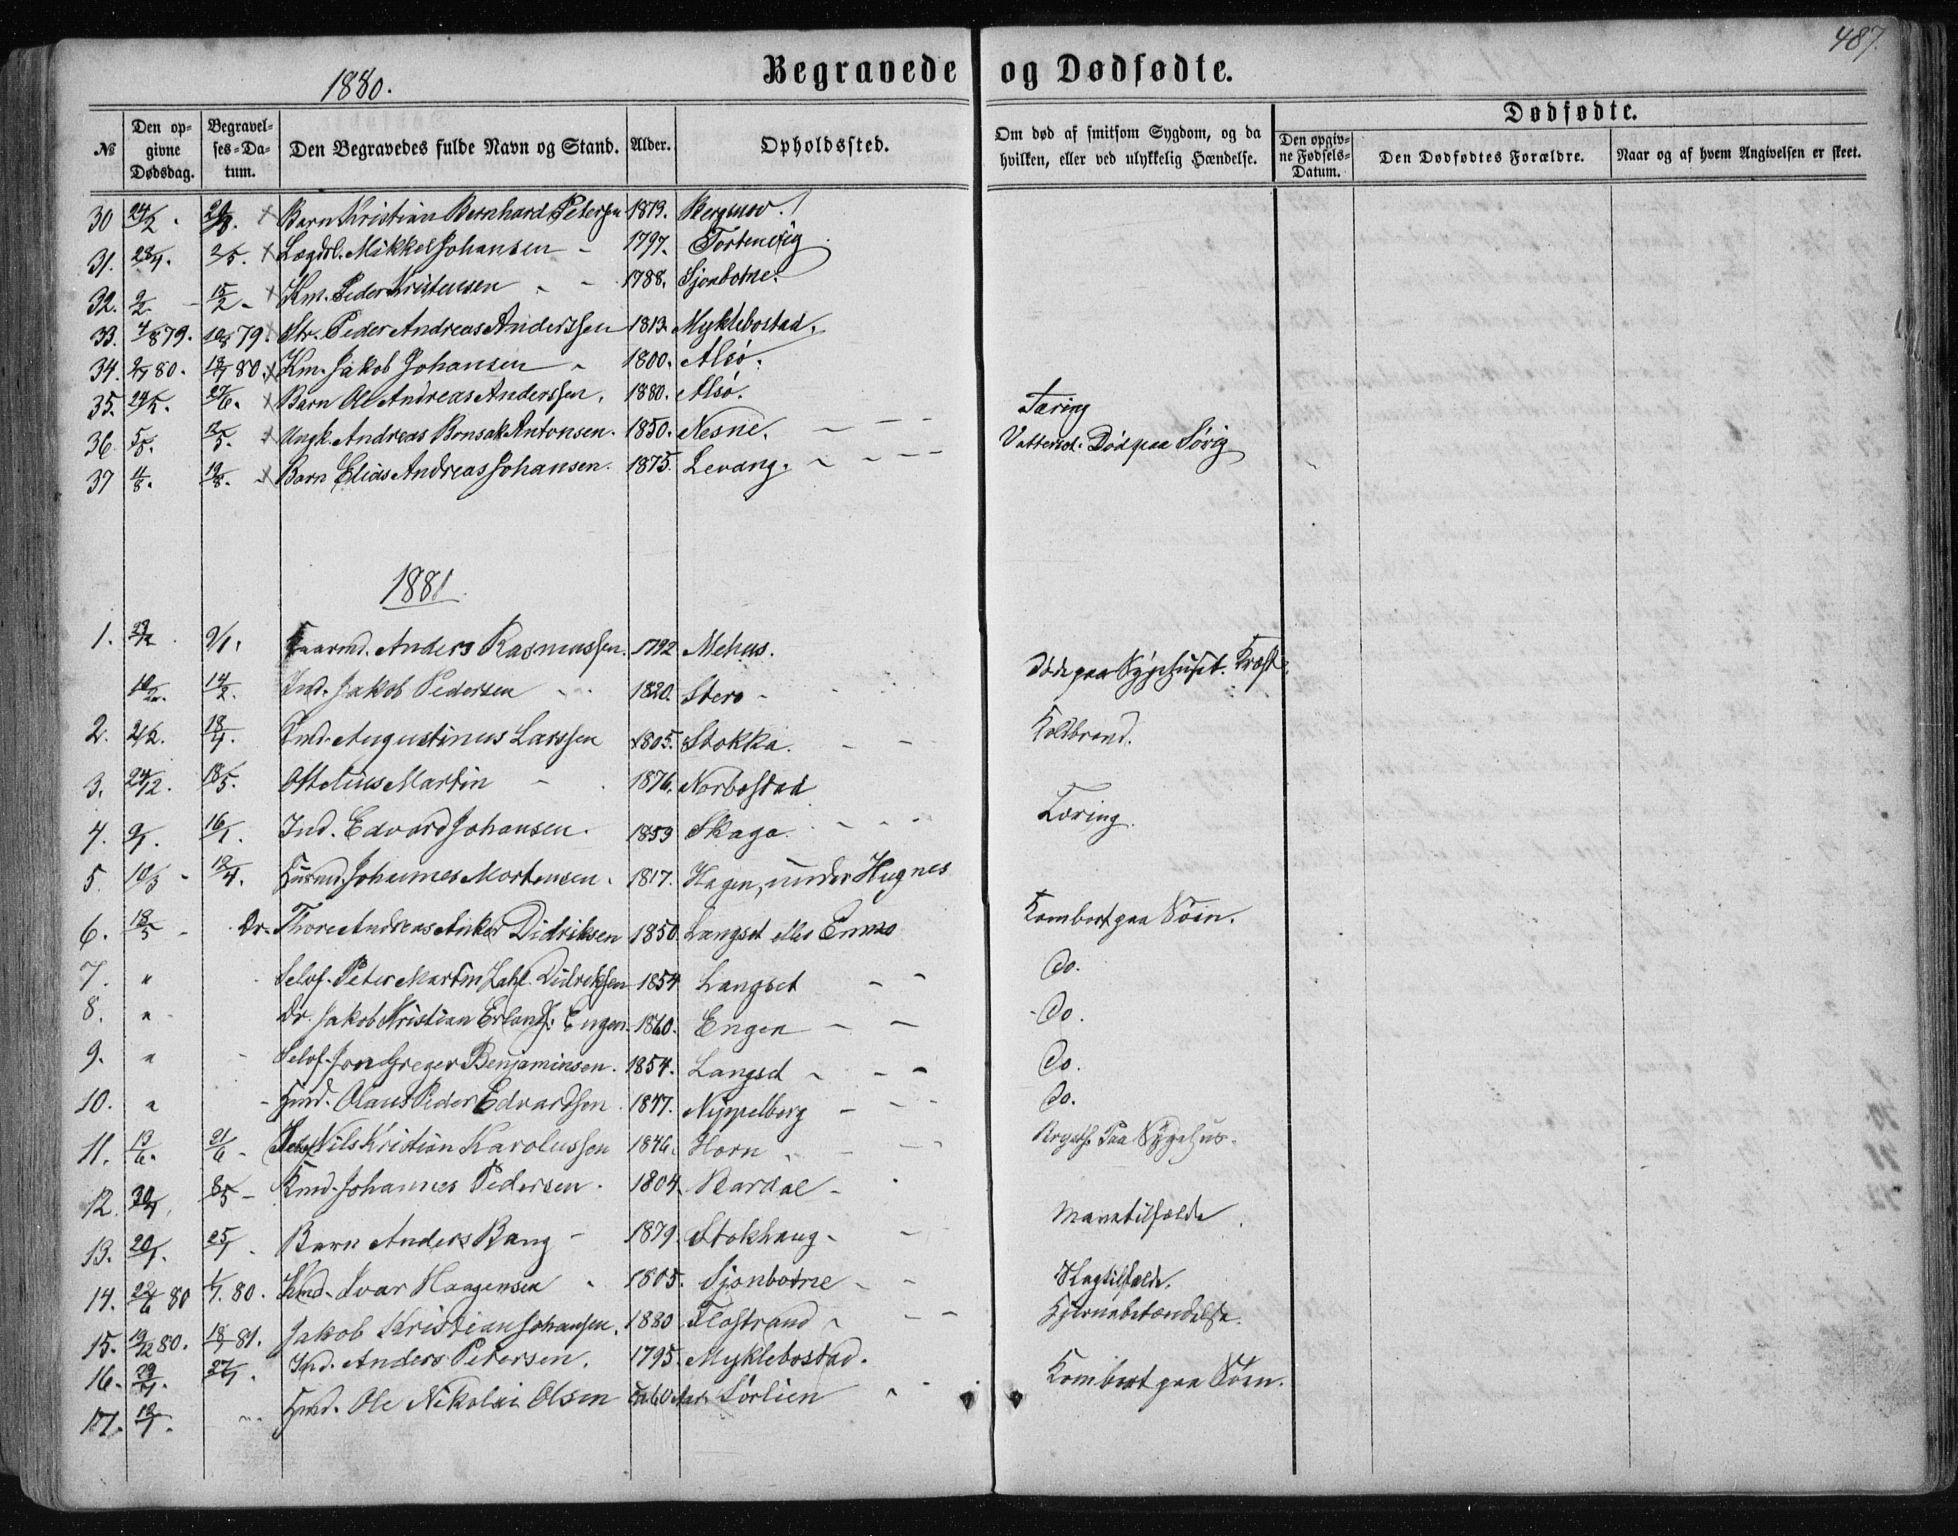 487.
1880.
Begravede og Dødfødte.
Dødfødte.
№
Den opgivne Dødsdag.
Begravelses-Datum.
Den Begravedes fulde Navn og Stand.
Alder.
Opholdssted.
Om død af smitsom Sygdom, og da hvilken, eller ved ulykkelig Hændelse.
Den opgivne Fødsels-Datum.
Den Dødfødtes Forældre.
Naar og af hvem Angivelsen er skeet.
30 24/2. Barn Kristian Bernhard Petersen 1879.
31. 28/4. 2/5. Lægdsl. Mikkel Johansen 1797. Tortenvig
32. 2/2 15/2 Km. Peder Kristensen 1788. Sjonbotne.
33. 4/8 79. 10/8 79. Str. Peder Andreas Anderssen 1813. Myklebostad.
34. 2/7 80. 18/7 80. Km. Jakob Johansen 1800. Alsø.
35. 24/5. 27/6. Barn Ole Andreas Anderssen. 1880. Alsø.
36. 5/5. 12/5. Ungk. Andreas Bonsak Antonsen. 1850. Nesne. Tæring
37 11/8. 19/8. Barn Elias Andreas Johansen. 1875. Levang. Vattersot. Død paa Sørig
1881.
1. 9/1. Kaarmd. Anders Rasmussen. 1792 Mehus.
10/2. 14/2. Ind. Jakob Pedersen 1820. Stero Døde paa Sygehuset. Kræft.
2. 2/2. 18/4. Ind. Augustinus Larssen 1805. Stokka. Koldbrand.
3. 24/12. 18/5. Ottelius Martin 1876. Norbostad
4. 9/1. 16/1. Ind. Edvard Johansen. 1859 Skaga. Tæring.
5. 10/3 18/4. Husmd. Johannes Mortensen. 1817. Hagen, under Hugnes
6. 18/3 Dr. Thore Andreas Anker Didriksen 1850. Langset eller Enmo Kom bort paa Søen.
7. " Selvf. Peter Martin Zahl Didriksen 1854 Langset Do.
8. " Dr. Jakob Kristian Erlands: Engen 1860. Engen Do.
9. " Selvf. Jon Greger Benjaminsen. 1854. Langset Do.
10. " Hmd. Olaus Peder Edvardsen. 1847. Nyppelberg Do.
11. 13/6. 21/6 Selvf. Nils Kristian Karolussen 1846. Horn Paa Sygehus.
12. 30/4. 8/5 Kmd. Johannes Pedersen. 1804. Bardal
13. 20/1. 25/1. Barn Anders Bang 1879. Stokhaug. Mavetilfælde
14. 22/6 80 4/7. 80. Kmd. Ivar Haagensen 1805. Sjonbotne Slagtilfælde.
15. 19/12 80. 18/1 81. Jakob Kristian Johansen. 1880 Flostrand Hjernebetændelse.
16. 29/1. 27/1. Ind. Anders Petersen. 1795. Myklebostad.
17. 18/1. Hmd. Ole Nikolai Olsen Ca 60 Aar. Sørlien Kom bort paa Søen.